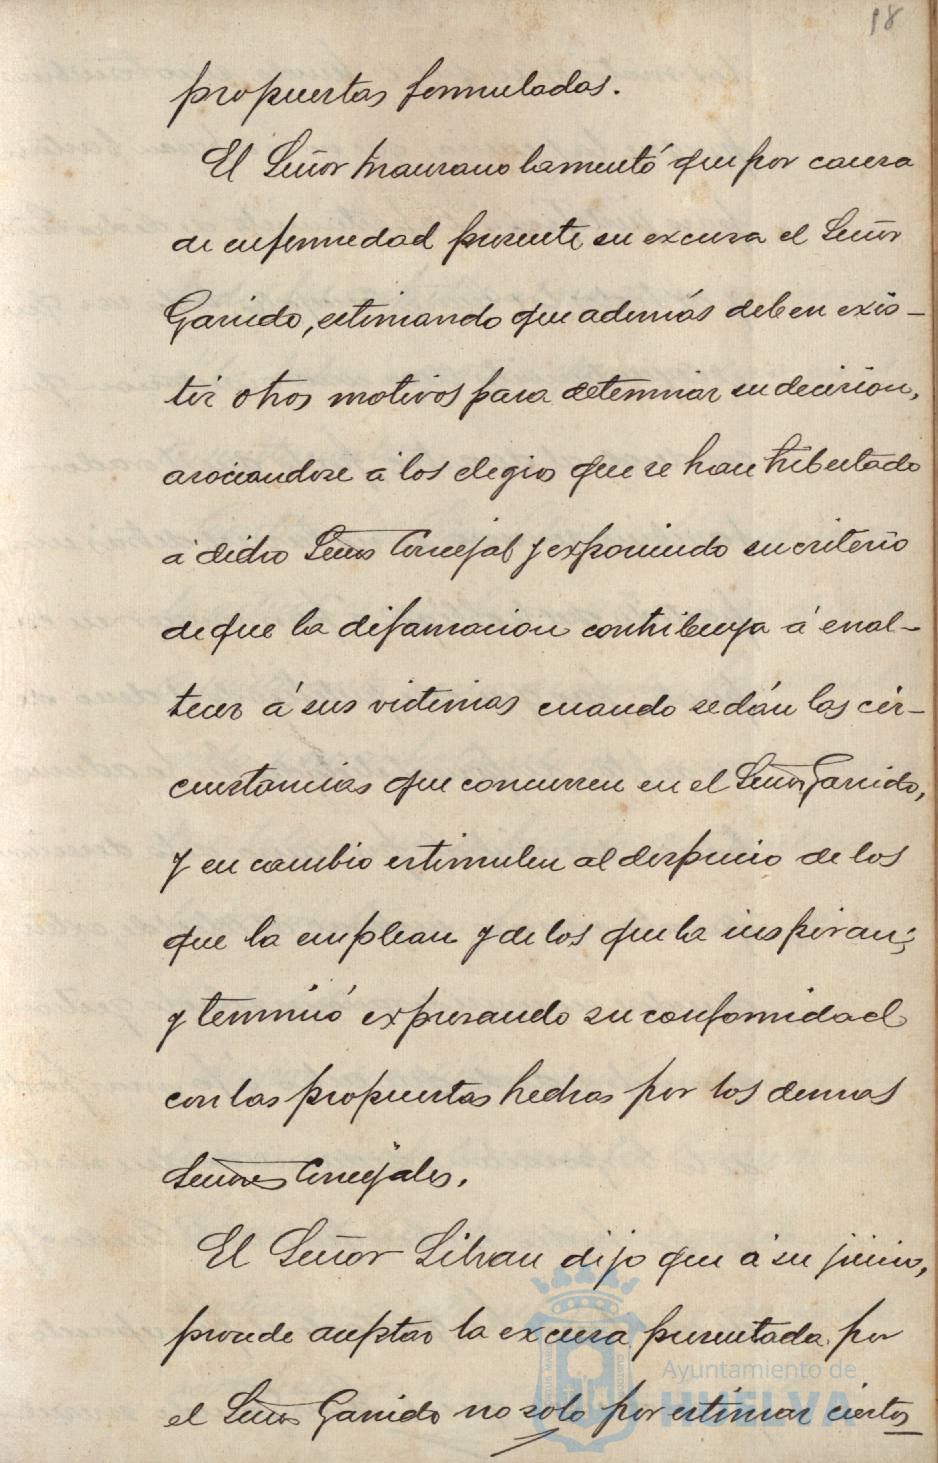 18
propuestas formuladas.
El Señor Manzano lamentó que por causa
de enfermedad presente su excusa el Señor
Garrido, estimando que además deben exis-
tir otros motivos para determinar su decision,
asociandose á los elogios que se han tributado
á dicho Señor Concejal y exponiendo su criterio
de que la difamacion contribuya á enal-
tecer á sus victimas cuando se dán las cir-
cunstancias que concurren en el Señor Garrido,
y en cambio estimulen al desprecio de los
que la emplean y de los que la inspiran;
y terminó expresando su conformidad
con las propuestas hechas por los demas
Señores Concejales.
El Señor Silvan dijo que á su juicio,
procede aceptar la excusa presentada por
el Señor Garrido no solo por estimar ciertos
Ayuntamiento de
HUELVA